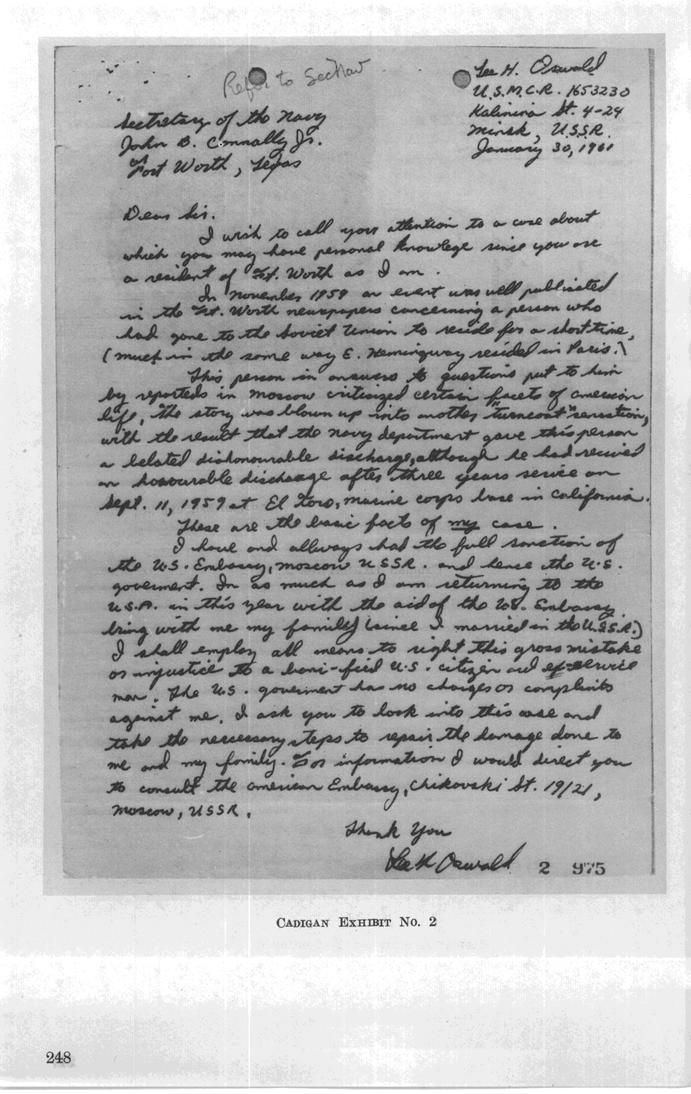 Refer to SecNav
Lee H. Oswald
U.S.M.C.R. 1653230
Kalinina St. 4-24
Minsk, U.S.S.R.
January 30, 1961
Secretary of the Navy
John B. Connally Jr.
Fort Worth, Texas
Dear Sir.
I wish to call your attention to a case about
which you may have personal knowlege since you are
a resident of Ft. Worth as I am.
In November 1959 an event was well publicated
in the Ft. Worth newspapers concerning a person who
had gone to the Soviet Union to reside for a short time,
(much in the same way E. Hemingway resided in Paris.)
This person in answers to questions put to him
by reporteds in Moscow criticized certain facets of american
life, the story was blown up into another "turncoat" sensation,
with the result that the navy department gave this person
a belated dishonourable discharge, although he had received
an honourable discharge after three years service on
Sept. 11, 1959 at El Toro, marine corps base in California.
These are the basic facts of my case.
I have and allways had the full sanction of
the U.S. Embassy, Moscow USSR. and hence the U.S.
goverment. In as much as I am returning to the
U.S.A. in this year with the aid of the U.S. Embassy
bring with me my family (since I married in the U.S.S.R.)
I shall employ all means to right this gross mistake
or injustice to a boni-fied U.S. citizen and ex-service
man. The U.S. goverment has no charges or complaints
against me. I ask you to look into this case and
take the neccessary steps to repair the damage done to
me and my family. For information I would direct you
to consult the american Embassy, Chikovski St. 19/21,
Moscow, USSR.
Thank You
Lee H Oswald
2 975
CADIGAN EXHIBIT NO. 2
248